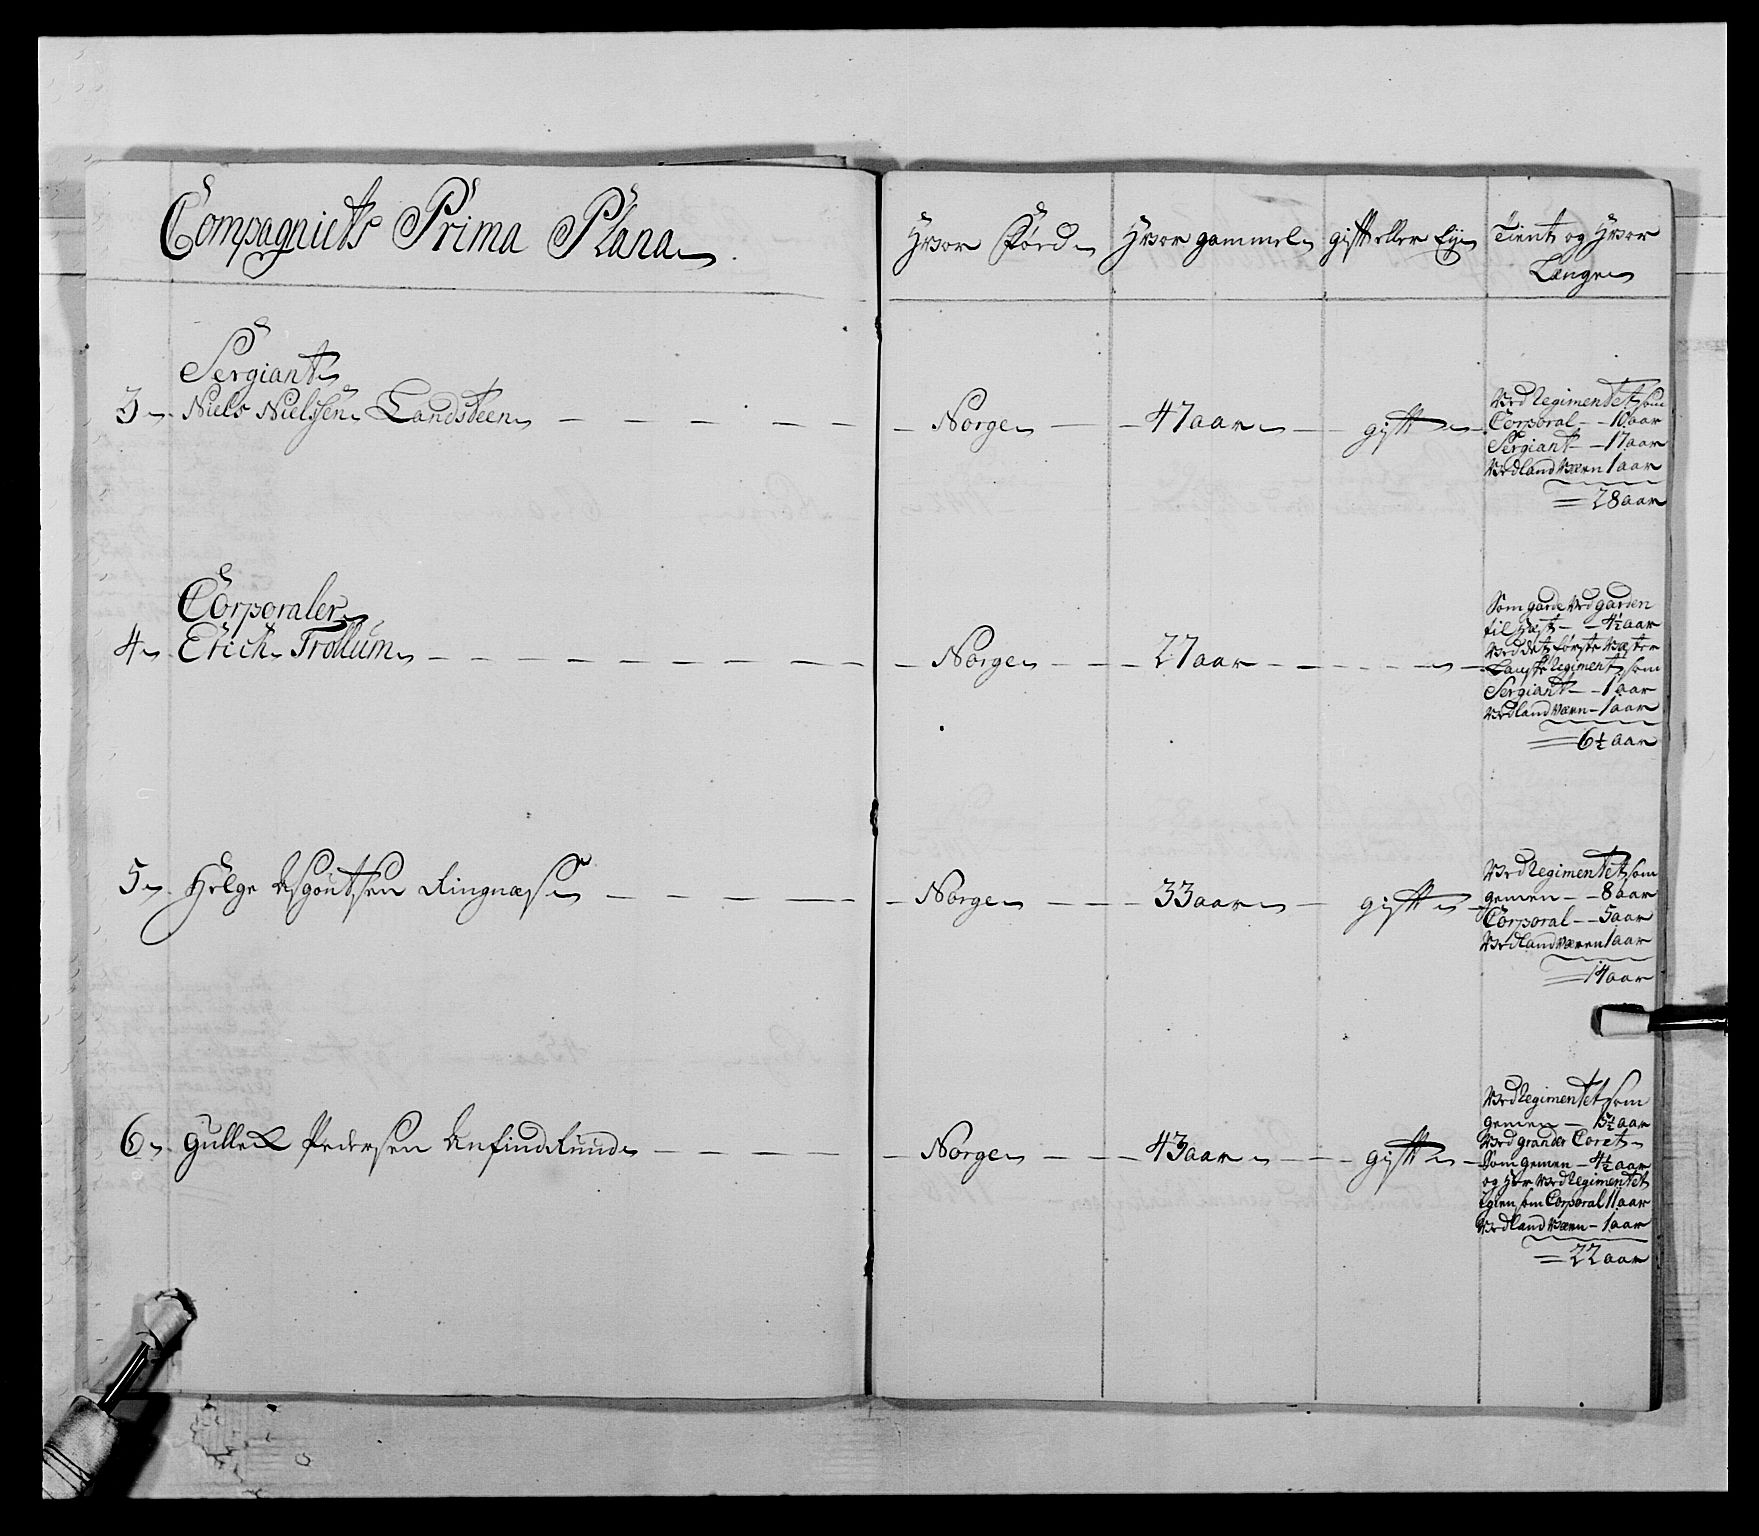 Compagniets Prima Plana
Hvor Fød
Hvor gammel
gift eller Eij
Tient og Hvor
Længe
Sergiant
3 Niels Nielssen Landsteen
Norge
47 aar
gift
Ved Regimentet som
Corporal - - 10 aar
Sergiant - - 17 aar
Ved land Værn 1 aar
= 28 aar
Corporaler
4 Erich Trollum
Norge
27 aar
Som garde Ved garden
til Hæst - - 4½ aar
Ved det første Væster
Regiment som
Sergiant - - 1 aar
Ved land værn - 1 aar
= 6½ aar
5 Helge Ringnæs
Norge
33 aar
gift
Ved Regimentet som
gemen - - 8 aar
Corporal - - 5 aar
Ved land værn 1 aar
= 14 aar
6 Gulleck Pedersen
Norge
43 aar
gift
Ved Regimentet som
gemen - 5½ aar
Ved
Som gemen - 4½ aar
og Her Ved Regimentet
igien som Corporal 11 aar
Ved land Værn - 1 aar
= 22 aar